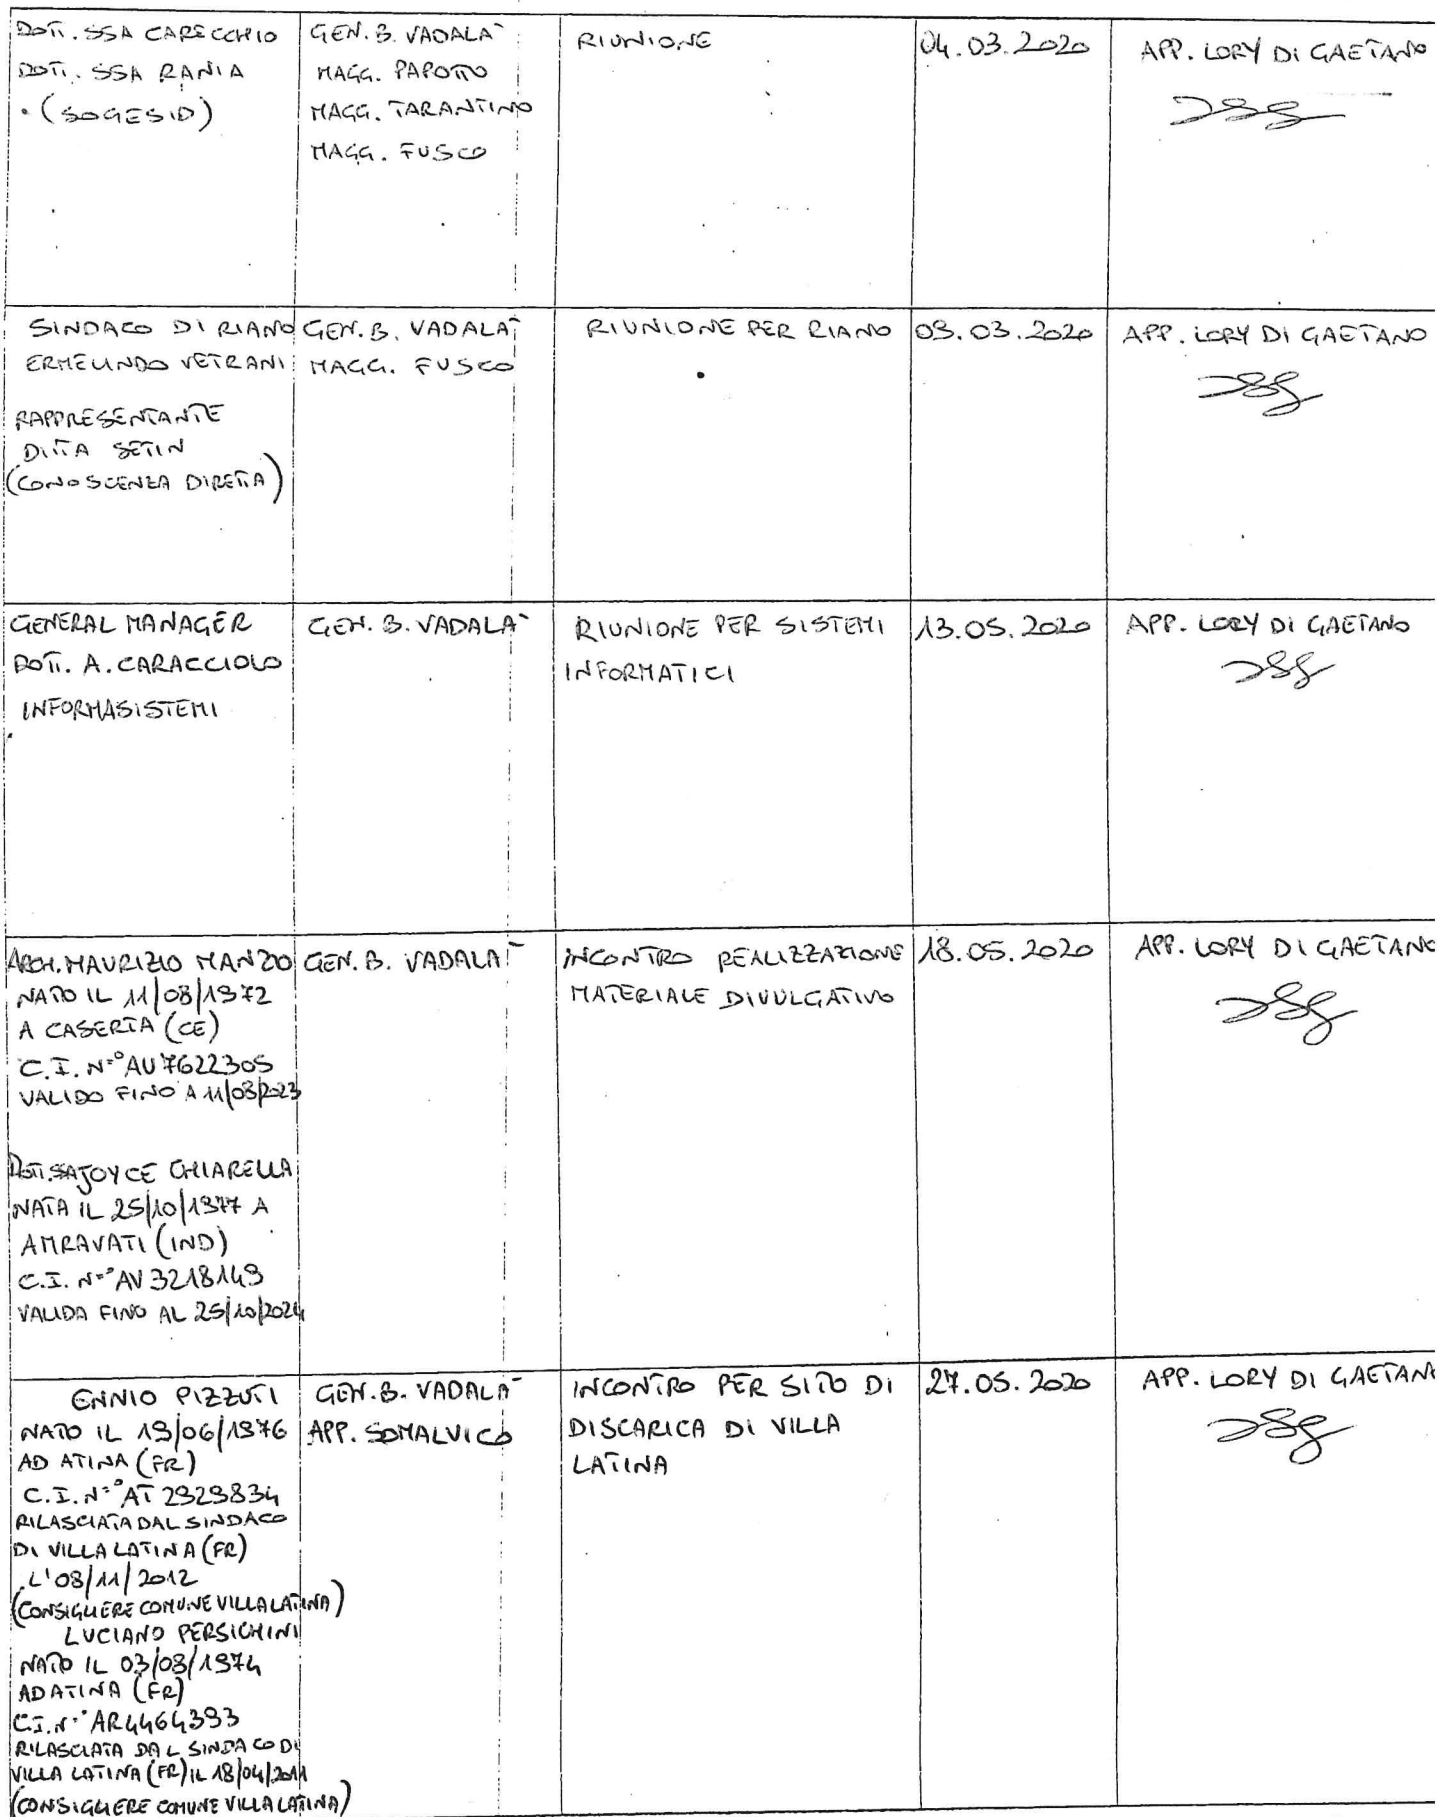 DOTT. SSA CARECCHIO
DOTT. SSA RANIA
(SOGESID)
GEN. B. VADALA'
MAGG. PAPOTTO
MAGG. TARANTINO
MAGG. FUSCO
RIUNIONE
04.03.2020
APP. LORY DI GAETANO
SINDACO DI RIANO
ERMELINDO VETRANI
RAPPRESENTANTE
DITTA SETIN
(CONOSCENZA DIRETTA)
GEN. B. VADALA'
MAGG. FUSCO
RIUNIONE PER RIANO
09.03.2020
APP. LORY DI GAETANO
GENERAL MANAGER
DOTT. A. CARACCIOLO
INFORMASISTEMI
GEN. B. VADALA'
RIUNIONE PER SISTEMI
INFORMATICI
13.05.2020
APP. LORY DI GAETANO
ARCH. MAURIZIO MANZO
NATO IL 11/08/1972
A CASERTA (CE)
C.I. N° AU7622305
VALIDO FINO A 11/08/2023
DOTT.SSA JOYCE CHIARELLA
NATA IL 25/10/1977 A
AMRAVATI (IND)
C.I. N° AV 3218149
VALIDA FINO AL 25/10/2024
GEN. B. VADALA'
INCONTRO REALIZZAZIONE
MATERIALE DIVULGATIVO
18.05.2020
APP. LORY DI GAETANO
ENNIO PIZZUTI
NATO IL 19/06/1976
AD ATINA (FR)
C.I. N° AT 2929834
RILASCIATA DAL SINDACO
DI VILLA LATINA (FR)
L'08/11/2012
(CONSIGLIERE COMUNE VILLA LATINA)
LUCIANO PERSICHINI
NATO IL 03/09/1974
AD ATINA (FR)
C.I. N° AR4464393
RILASCIATA DAL SINDACO DI
VILLA LATINA (FR) IL 18/04/2011
(CONSIGLIERE COMUNE VILLA LATINA)
GEN. B. VADALA'
APP. SOMALVICO
INCONTRO PER SITO DI
DISCARICA DI VILLA
LATINA
27.05.2020
APP. LORY DI GAETANO